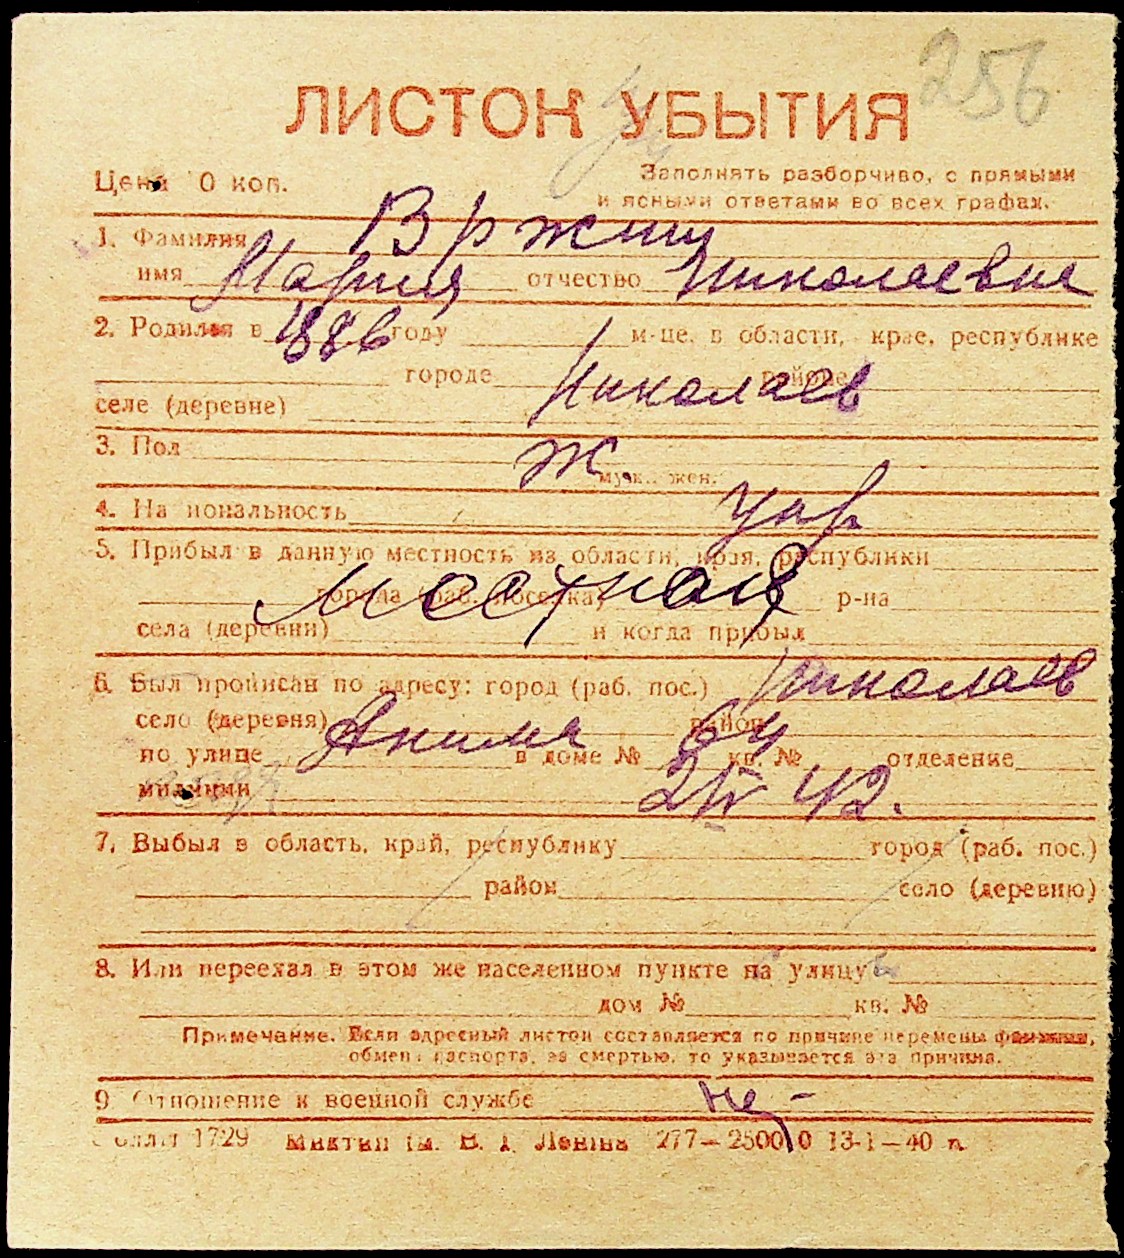 256
ЛИСТОК УБЫТИЯ
Цена 0 коп.
Заполнять разборчиво, с прямыми
и ясными ответами во всех графах.
1. Фамилия Вржищ
имя Мария отчество Николаевна
2. Родился в 1886 году м-це, в области, крае, республике
городе Николаев районе
селе (деревне)
3. Пол Ж.
муж., жен.
4. Национальность укр
5. Прибыл в данную местность из области, края, республики
города (раб. поселка) местная р-на
села (деревни) и когда прибыл
6. Был прописан по адресу: город (раб. пос.) Николаев
село (деревня) район
по улице Акима в доме № 64 кв. № отделение
милиции 2 IV 42.
7. Выбыл в область, край, республику город (раб. пос.)
район село (деревню)
8. Или переехал в этом же населенном пункте на улицу
дом № кв. №
Примечание. Если адресный листок составляется по причине перемены фамилии,
обмена паспорта, за смертью, то указывается эта причина.
9. Отношение к военной службе нет
1729 ім. В. І. Леніна 277—25000 13-1—40 п.